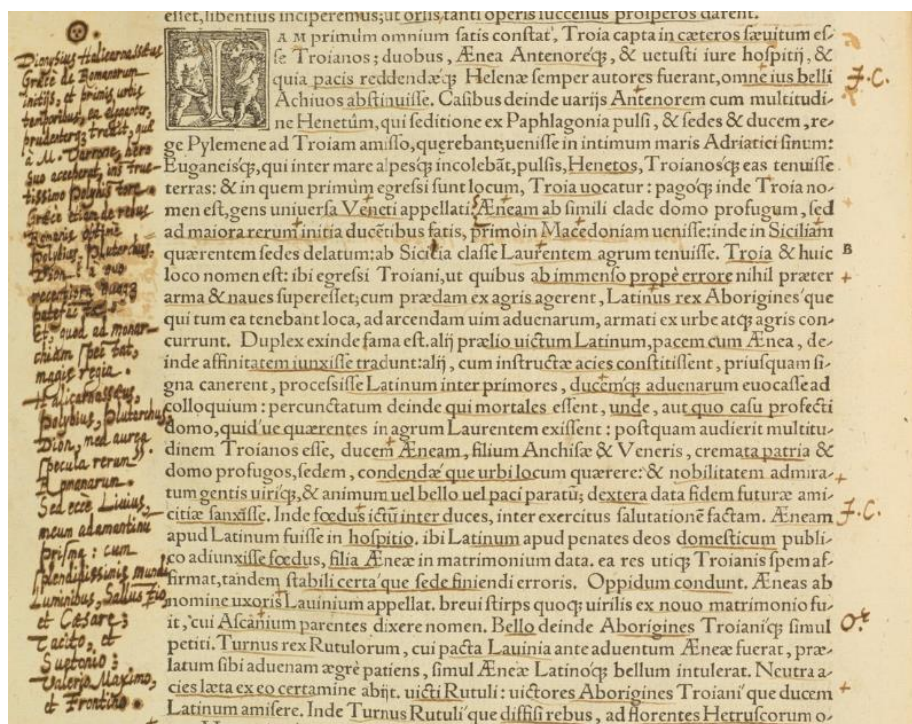 esset, libentius inciperemus; ut orsis tanti operis successus prosperos darent.
IAM primum omnium satis constat, Troia capta in cæteros sæuitum es-
se Troianos; duobus, Ænea Antenoreq́;, & uetusti iure hospitij, &
quia pacis reddendæq́; Helenæ semper autores fuerant, omne ius belli
Achiuos abstinuisse. Casibus deinde uarijs Antenorem cum multitudi-
ne Henetûm, qui seditione ex Paphlagonia pulsi, & sedes & ducem, re-
ge Pylemene ad Troiam amisso, querebant; uenisse in intimum maris Adriatici sinum:
Euganeisq́;, qui inter mare alpesq́; incolebāt, pulsis, Henetos, Troianosq́; eas tenuisse
terras: & in quem primùm egressi sunt locum, Troia uocatur: pagoq́; inde Troia no-
men est, gens uniuersa Veneti appellati. Æneam ab simili clade domo profugum, sed
ad maiora rerum initia ducētibus fatis, primò in Macedoniam uenisse: inde in Siciliam
quærentem sedes delatum: ab Sicilia classe Laurentem agrum tenuisse. Troia & huic
loco nomen est: ibi egressi Troiani, ut quibus ab immenso propè errore nihil præter
arma & naues superesset; cum prædam ex agris agerent, Latinus rex Aborigines'que
qui tum ea tenebant loca, ad arcendam uim aduenarum, armati ex urbe atq; agris con-
currunt. Duplex exinde fama est. alij prælio uictum Latinum, pacem cum Ænea, de-
inde affinitatem iunxisse tradunt: alij, cum instructæ acies constitissent, priusquam si-
gna canerent, processisse Latinum inter primores, ducemq́; aduenarum euocasse ad
colloquium: percunctatum deinde qui mortales essent, unde, aut quo casu profecti
domo, quid'ue quærentes in agrum Laurentem exissent: postquam audierit multitu-
dinem Troianos esse, ducem Æneam, filium Anchisæ & Veneris, cremata patria &
domo profugos, sedem, condendæ'que urbi locum quærere: & nobilitatem admira-
tum gentis uiriq́;, & animum uel bello uel paci paratū; dextera data fidem futuræ ami-
citiæ sanxisse. Inde fœdus ictū inter duces, inter exercitus salutationē factam. Æneam
apud Latinum fuisse in hospitio. ibi Latinum apud penates deos domesticum publi-
co adiunxisse fœdus, filia Æneæ in matrimonium data. ea res utiq; Troianis spem af-
firmat, tandem stabili certa'que sede finiendi erroris. Oppidum condunt. Æneas ab
nomine uxoris Lauinium appellat. breui stirps quoq; uirilis ex nouo matrimonio fu-
it, cui Ascanium parentes dixere nomen. Bello deinde Aborigines Troianiq́; simul
petiti. Turnus rex Rutulorum, cui pacta Lauinia ante aduentum Æneæ fuerat, præ-
latum sibi aduenam ægrè patiens, simul Æneæ Latinoq́; bellum intulerat. Neutra a-
cies læta ex eo certamine abijt. uicti Rutuli: uictores Aborigines Troiani'que ducem
Latinum amisere. Inde Turnus Rutuli'que diffisi rebus, ad florentes Hetruscorum o-
Dionysius Halicarnasseus
Græcè de Romanorum
initijs, et primis urbis
temporibus, ea eleganter,
prudenterq; tradit, quæ
à M. Varrone, hero
suo acceperat, instruc-
tissimo Polyhistore.
Græcè etiam de rebus
Romanis optimè
Polybius, Plutarchus,
Dion
Et, quod ad monar-
chiam spectat,
magis regia.
Halicarnasseus,
Polybius, Plutarchus,
Dion, mea aurea
specula rerum
Romanarum.
Sed eccè Liuius,
meum adamantinū
prisma: cum
splendidissimis mundi
Luminibus, Sallustio,
et Cæsare;
Tacito, et
Suetonio;
Valerio Maximo,
et Frontino.
J.C.
B
J.C.
Or